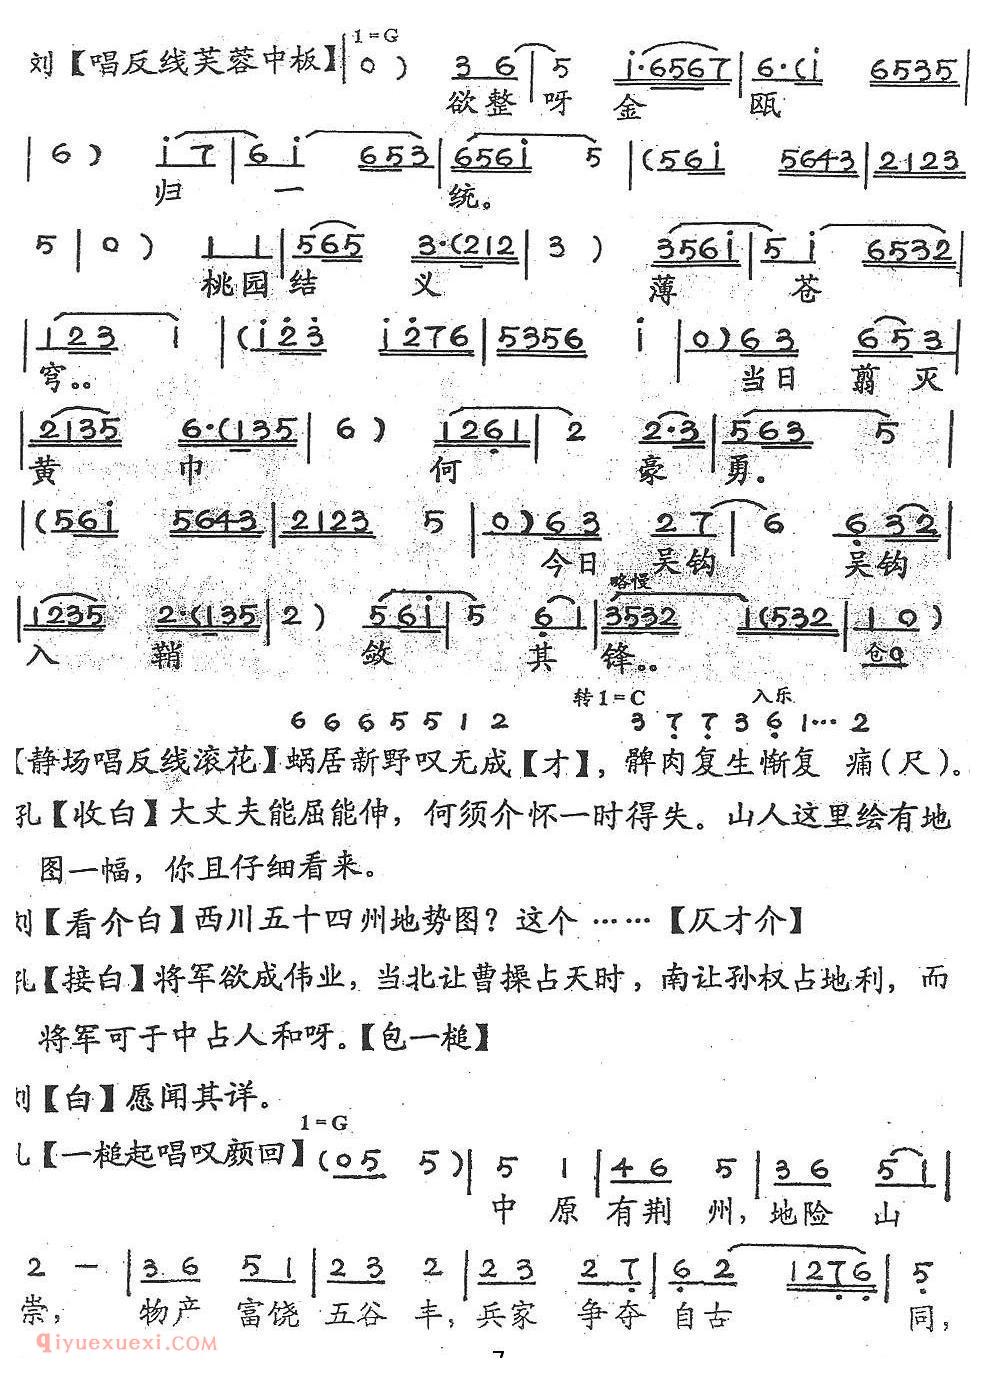 刘【唱反线芙蓉中板】 1=G | 0 ) 3 6 | 5 i·6567 | 6·(i 6535 |
欲整呀金瓯
| 6 ) i 7 | 6 i 653 | 656i 5 | (56i 5643 | 2123
归一统。
5 | 0 ) 1 1 | 565 3·(212 | 3 ) 356i | 5 i 6532 |
桃园结义薄苍
| 123 i | (i23 i276 | 5356 i | 0 ) 63 653 |
穹。。当日翦灭
| 2135 6·(135 | 6 ) 1261 | 2 2·3 | 563 5 |
黄巾何豪勇。
| (56i 5643 | 2123 5 | 0 ) 63 27 | 6 632 |
今日吴钩吴钩
略慢
| 1235 2·(135 | 2 ) 56i | 5 61 | 3532 1(532 | 1 0 )
入鞘敛其锋。。仓0
转1=C 入乐
6 6 6 5 5 1 2 3 7 7 3 6 1… 2
【静场唱反线滚花】蜗居新野叹无成【才】，髀肉复生惭复痛（尺）。
孔【收白】大丈夫能屈能伸，何须介怀一时得失。山人这里绘有地
图一幅，你且仔细看来。
刘【看介白】西川五十四州地势图？这个……【仄才介】
孔【接白】将军欲成伟业，当北让曹操占天时，南让孙权占地利，而
将军可于中占人和呀。【包一槌】
刘【白】愿闻其详。
孔【一槌起唱叹颜回】 1=G (05 5 ) | 5 1 | 46 5 | 36 51 |
中原有荆州，地险山
2 － | 36 51 | 23 2 | 23 27 | 62 1276 | 5
崇，物产富饶五谷丰，兵家争夺自古同，
qiyuexuexi.com
7